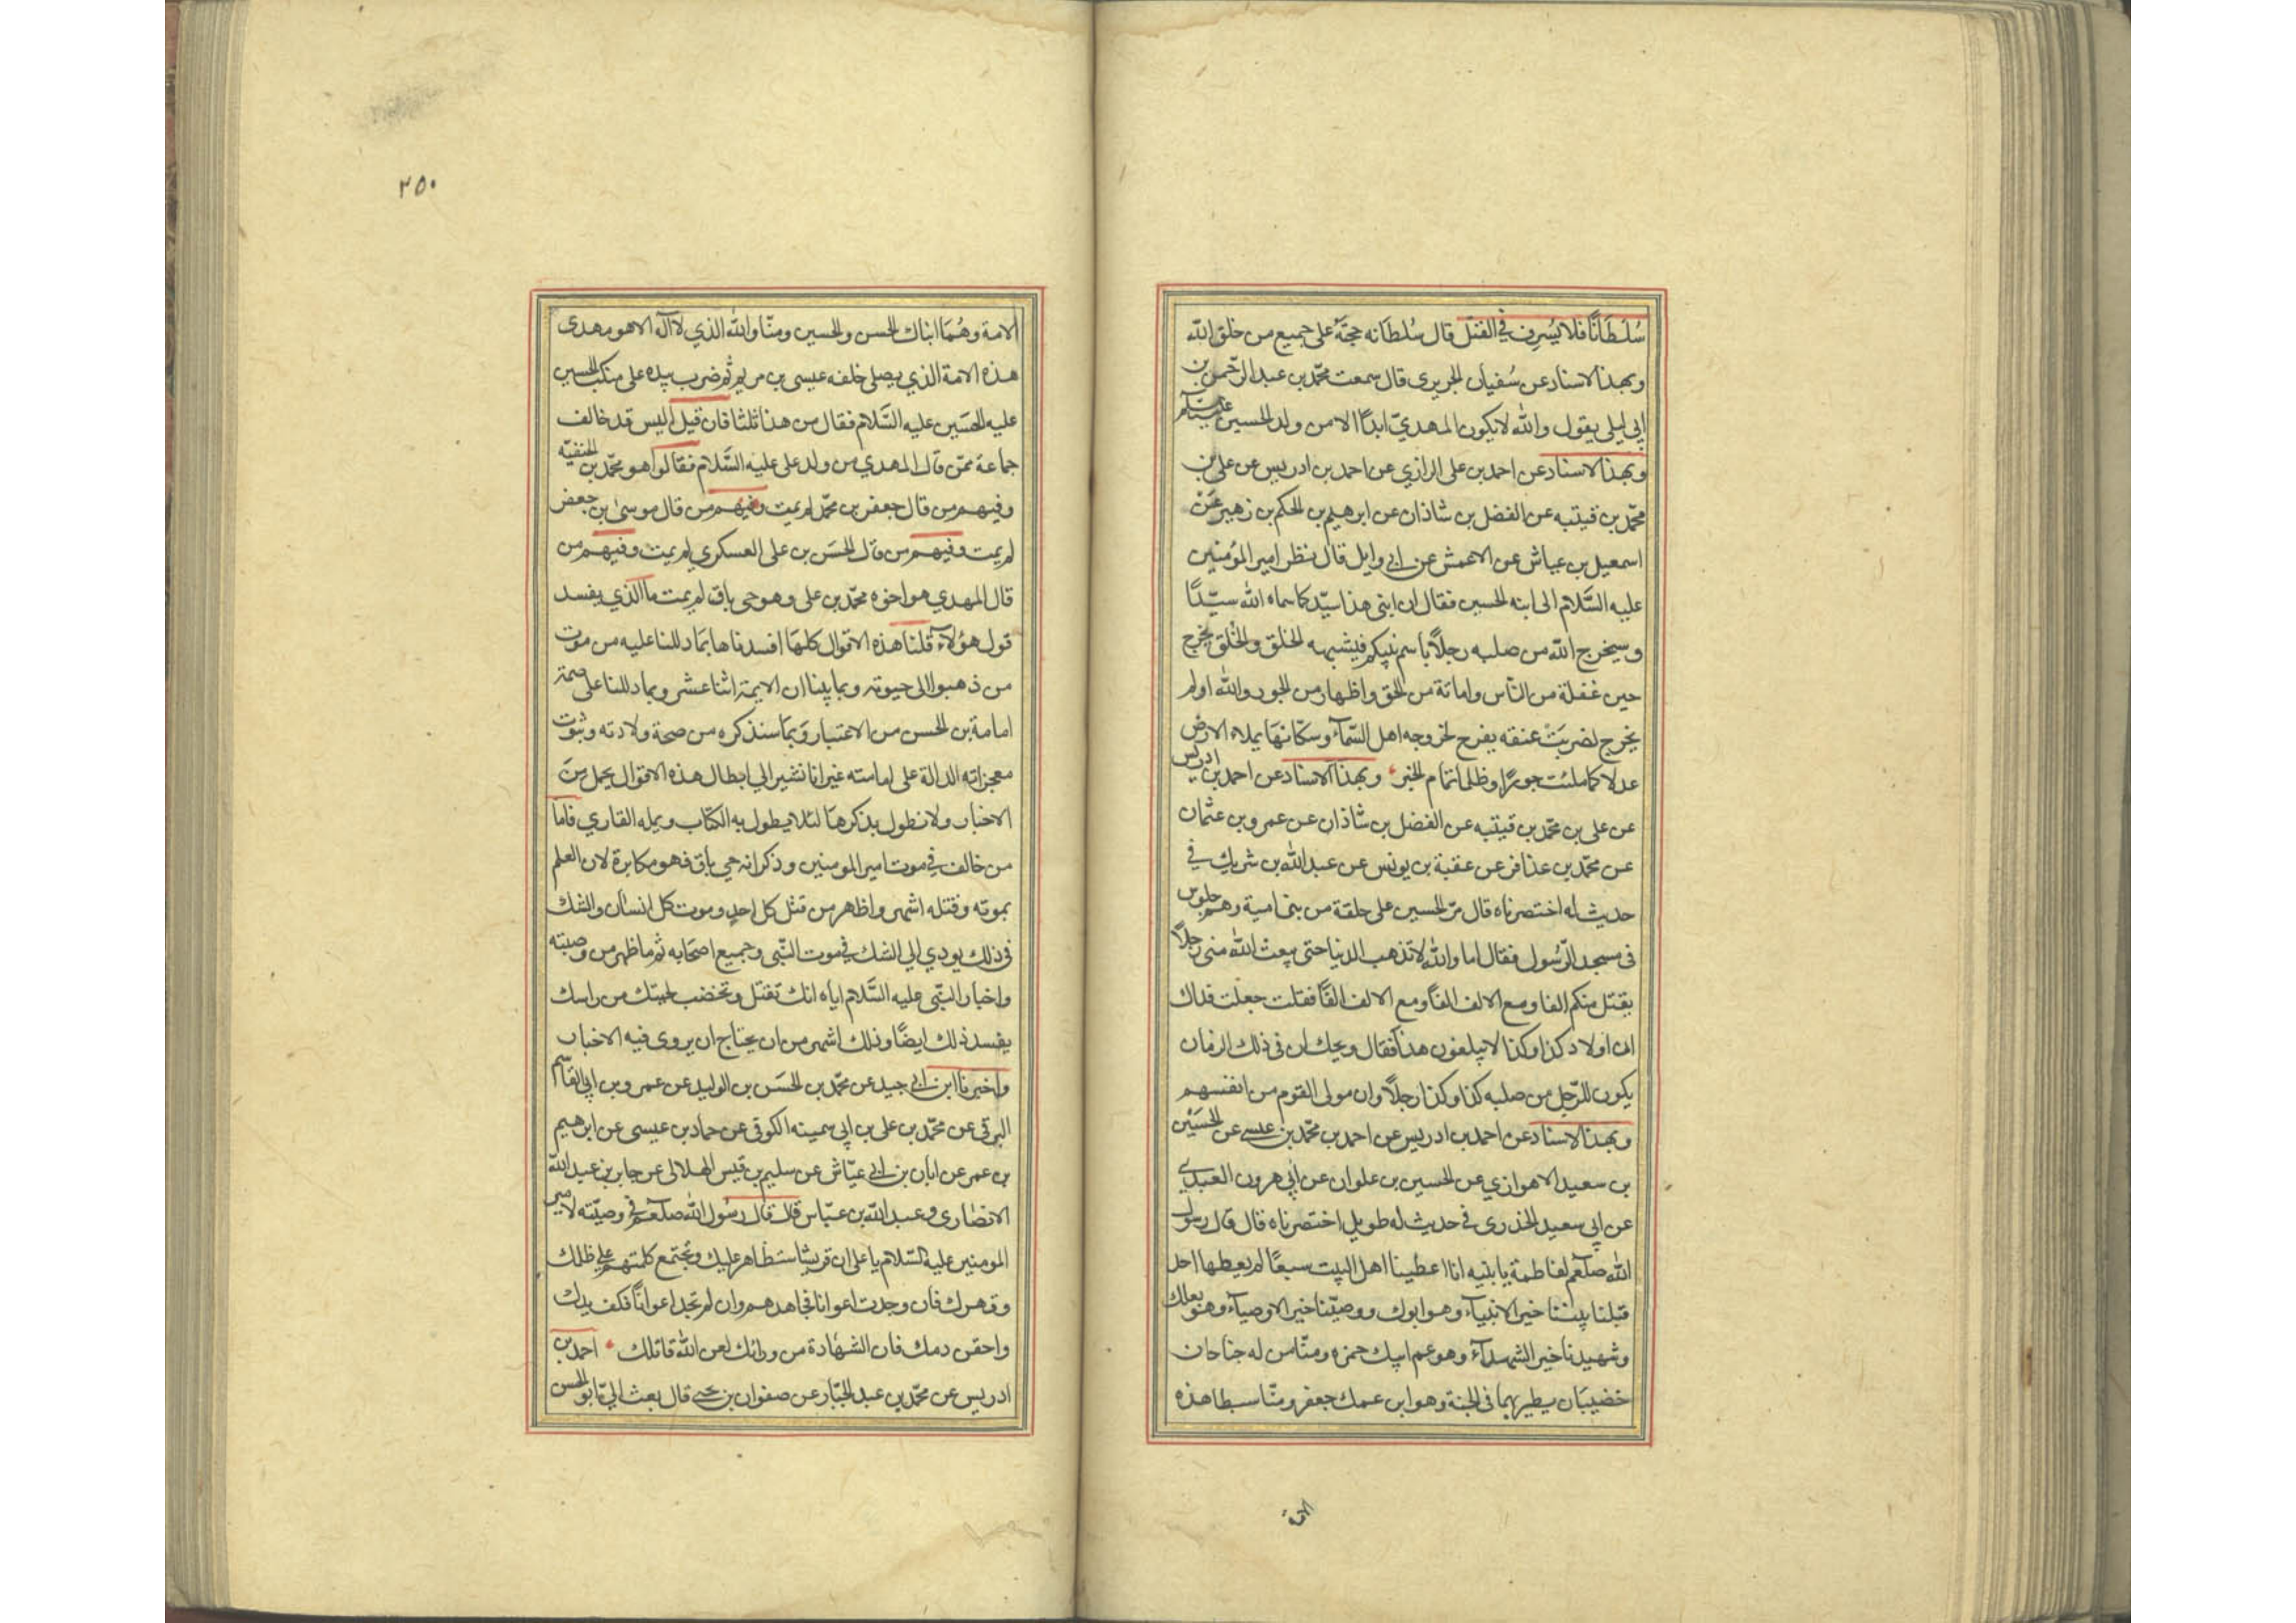 سُلْطَانًا فلا يُسرف في القتل قال سُلطانه حجّته على جميع من خلق الله
وبهذا الاسناد عن سُفيان الجريرى قال سمعت محمّد بن عبد الرّحمن بن
ابي ليلى يقول والله لا يكون المهديّ ابدًا الا من ولد الحسين عليه السلام
وبهذا الاسناد عن احمد بن على الرازي عن احمد بن ادريس عن على بن
محمّد بن قيتبه عن الفضل بن شاذان عن ابرهيم بن الحكم بن زهير عَنْ
اسمعيل بن عياش عن الاعمش عن ابي وايل قال نظر امير المؤمنين
عليه السَّلام الى ابنه الحسين فقال ان ابنى هذا سيّد كما سماه الله سيّدًا
وسيخرج الله من صلبه رجلاً باسم نبيكم فيشبهه الخلق والخُلق يخرج
حين غفلة من النّاس واماتة من الحق واظهار من الجور والله اولم
يخرج لضربَتْ عنقه يفرح لخروجه اهل السّمآء وسكّانهَا يملاء الارض
عدلا كما ملئت جورًا وظلما تمام الخبر وبهذا الاسناد عن احمد بن ادريس
عن على بن محمّد بن قيتبه عن الفضل بن شاذان عن عمرو بن عثمان
عن محمّد بن عذافر عن عقبة بن يونس عن عبد الله بن شريك في
حديث له اختصرناه قال مرّ الحسين على حلقة من بنى امية وهم جلوس
فى مسجد الرّسُول فقال اما والله لا تذهب الدنيا حتى يبعث الله منى رجلاً
يقتل منكم الفا ومع الالف الفًا ومع الالف الفًا فقلت جعلت فداك
ان اولاد كذا وكذا لا يبلغون هذا فقال ويحك ان فى ذلك الزمان
يكون للرّجل من صلبه كذا وكذا رجلاً وان مولى القوم من انفسهم
وبهذا الاسناد عن احمد بن ادريس عن احمد بن محمّد بن عيسى عن الحُسَيْن
بن سعيد الاهوازي عن الحسين بن علوان عن ابي هرون العبدي
عن ابي سعيد الخذرى في حديث له طويل اختصرناه قال قال رسول
الله صلعم لفاطمة يا بنيه انا اعطينا اهل البيت سبعًا لم يعطها احد
قبلنا نبيّنا خير الانبيآء وهو ابوك ووصيّنا خير الاوصيآء وهو بعلك
وشهيدنا خير الشهدآء وهو عم ابيك حمزه ومنّا من له جناحان
خضيبَان يطير بهما فى الجنة وهو ابن عمك جعفر ومنّا سبطا هذه
الامة
٢٥٠
الامة وهُمَا ابناك الحسن والحسين ومنّا والله الذي لا اله الا هو مهدى
هذه الامة الذي يصلى خلفه عيسى بن مريم ثم ضرب بيده على منكب الحسين
عليه الحسَين عليه السَّلام فقال من هذا ثلثا فان قيل اليس قد خالف
جماعة ممّن قال المهدي من ولد على عليه السَّلام فقالوا هو محمّد بن الحنفيّه
وفيهم من قال جعفر بن محمّد لم يمت وفيهم من قال موسىٰ بن جعفر
لم يمت وفيهم من قال الحسَن بن على العسكري لم يمت وفيهم من
قال المهدي هو اخوه محمّد بن على وهو حى باق لم يمت ما الذي يفسد
قول هؤلآء قلنا هذه الاقوال كلهَا افسدناها بمَا دللنا عليه من موت
من ذهبوا الى حيوته وبما بينا ان الايمة اثنا عشر وبما دللنا على صحة
امامة بن الحسن من الاعتبار وبمَا سنذكره من صحة ولادته وثبوت
معجزاته الدالة على امامته غير انا نشير الي ابطال هذه الاقوال بجمل منَ
الاخبار ولا نطول بذكرهَا لئلا يطول به الكتاب ويمله القاري فامّا
من خالف في موت امير المومنين وذكر انه حي باق فهو مكابرة لان العلم
بموته وقتله اشهر واظهر من قتل كل احدٍ وموت كل انسان والشك
فى ذلك يودي الي الشك في موت النّبى وجميع اصحَابه ثم ما ظهر من وصيته
واخبار النبّى عليه السَّلام اياه انك تقتل وتخضب لحيتك من راسك
يفسد ذلك ايضًا وذلك اشهر من ان يحتاج ان يروى فيه الاخبار
واخبرنا ابن ابي جيد عن محمّد بن الحسَن بن الوليد عن عمرو بن ابي القاسم
البرقى عن محمّد بن على بن ابي سمينه الكوفى عن حماد بن عيسى عن ابرهيم
بن عمر عن ابان بن ابي عيّاش عن سليم بن قيس الهلالى عن جابر بن عبد الله
الانصَارى وعبد الله بن عبّاس قال قال رسُول الله صلعم في وصيّته لامير
المومنين عليه السّلام يا على ان قريشا ستظاهر عليك وتجتمع كلمتهم على ظلمك
وقهرك فان وجدت اعوانا فجاهدهم وان لم تجد اعوانًا فكف يدك
واحقن دمك فان الشهَادة من ورائك لعن الله قاتلك احمد بن
ادريس عن محمّد بن عبد الجبّار عن صفوان بن يحيى قال بعث اليّ ابو الحسن